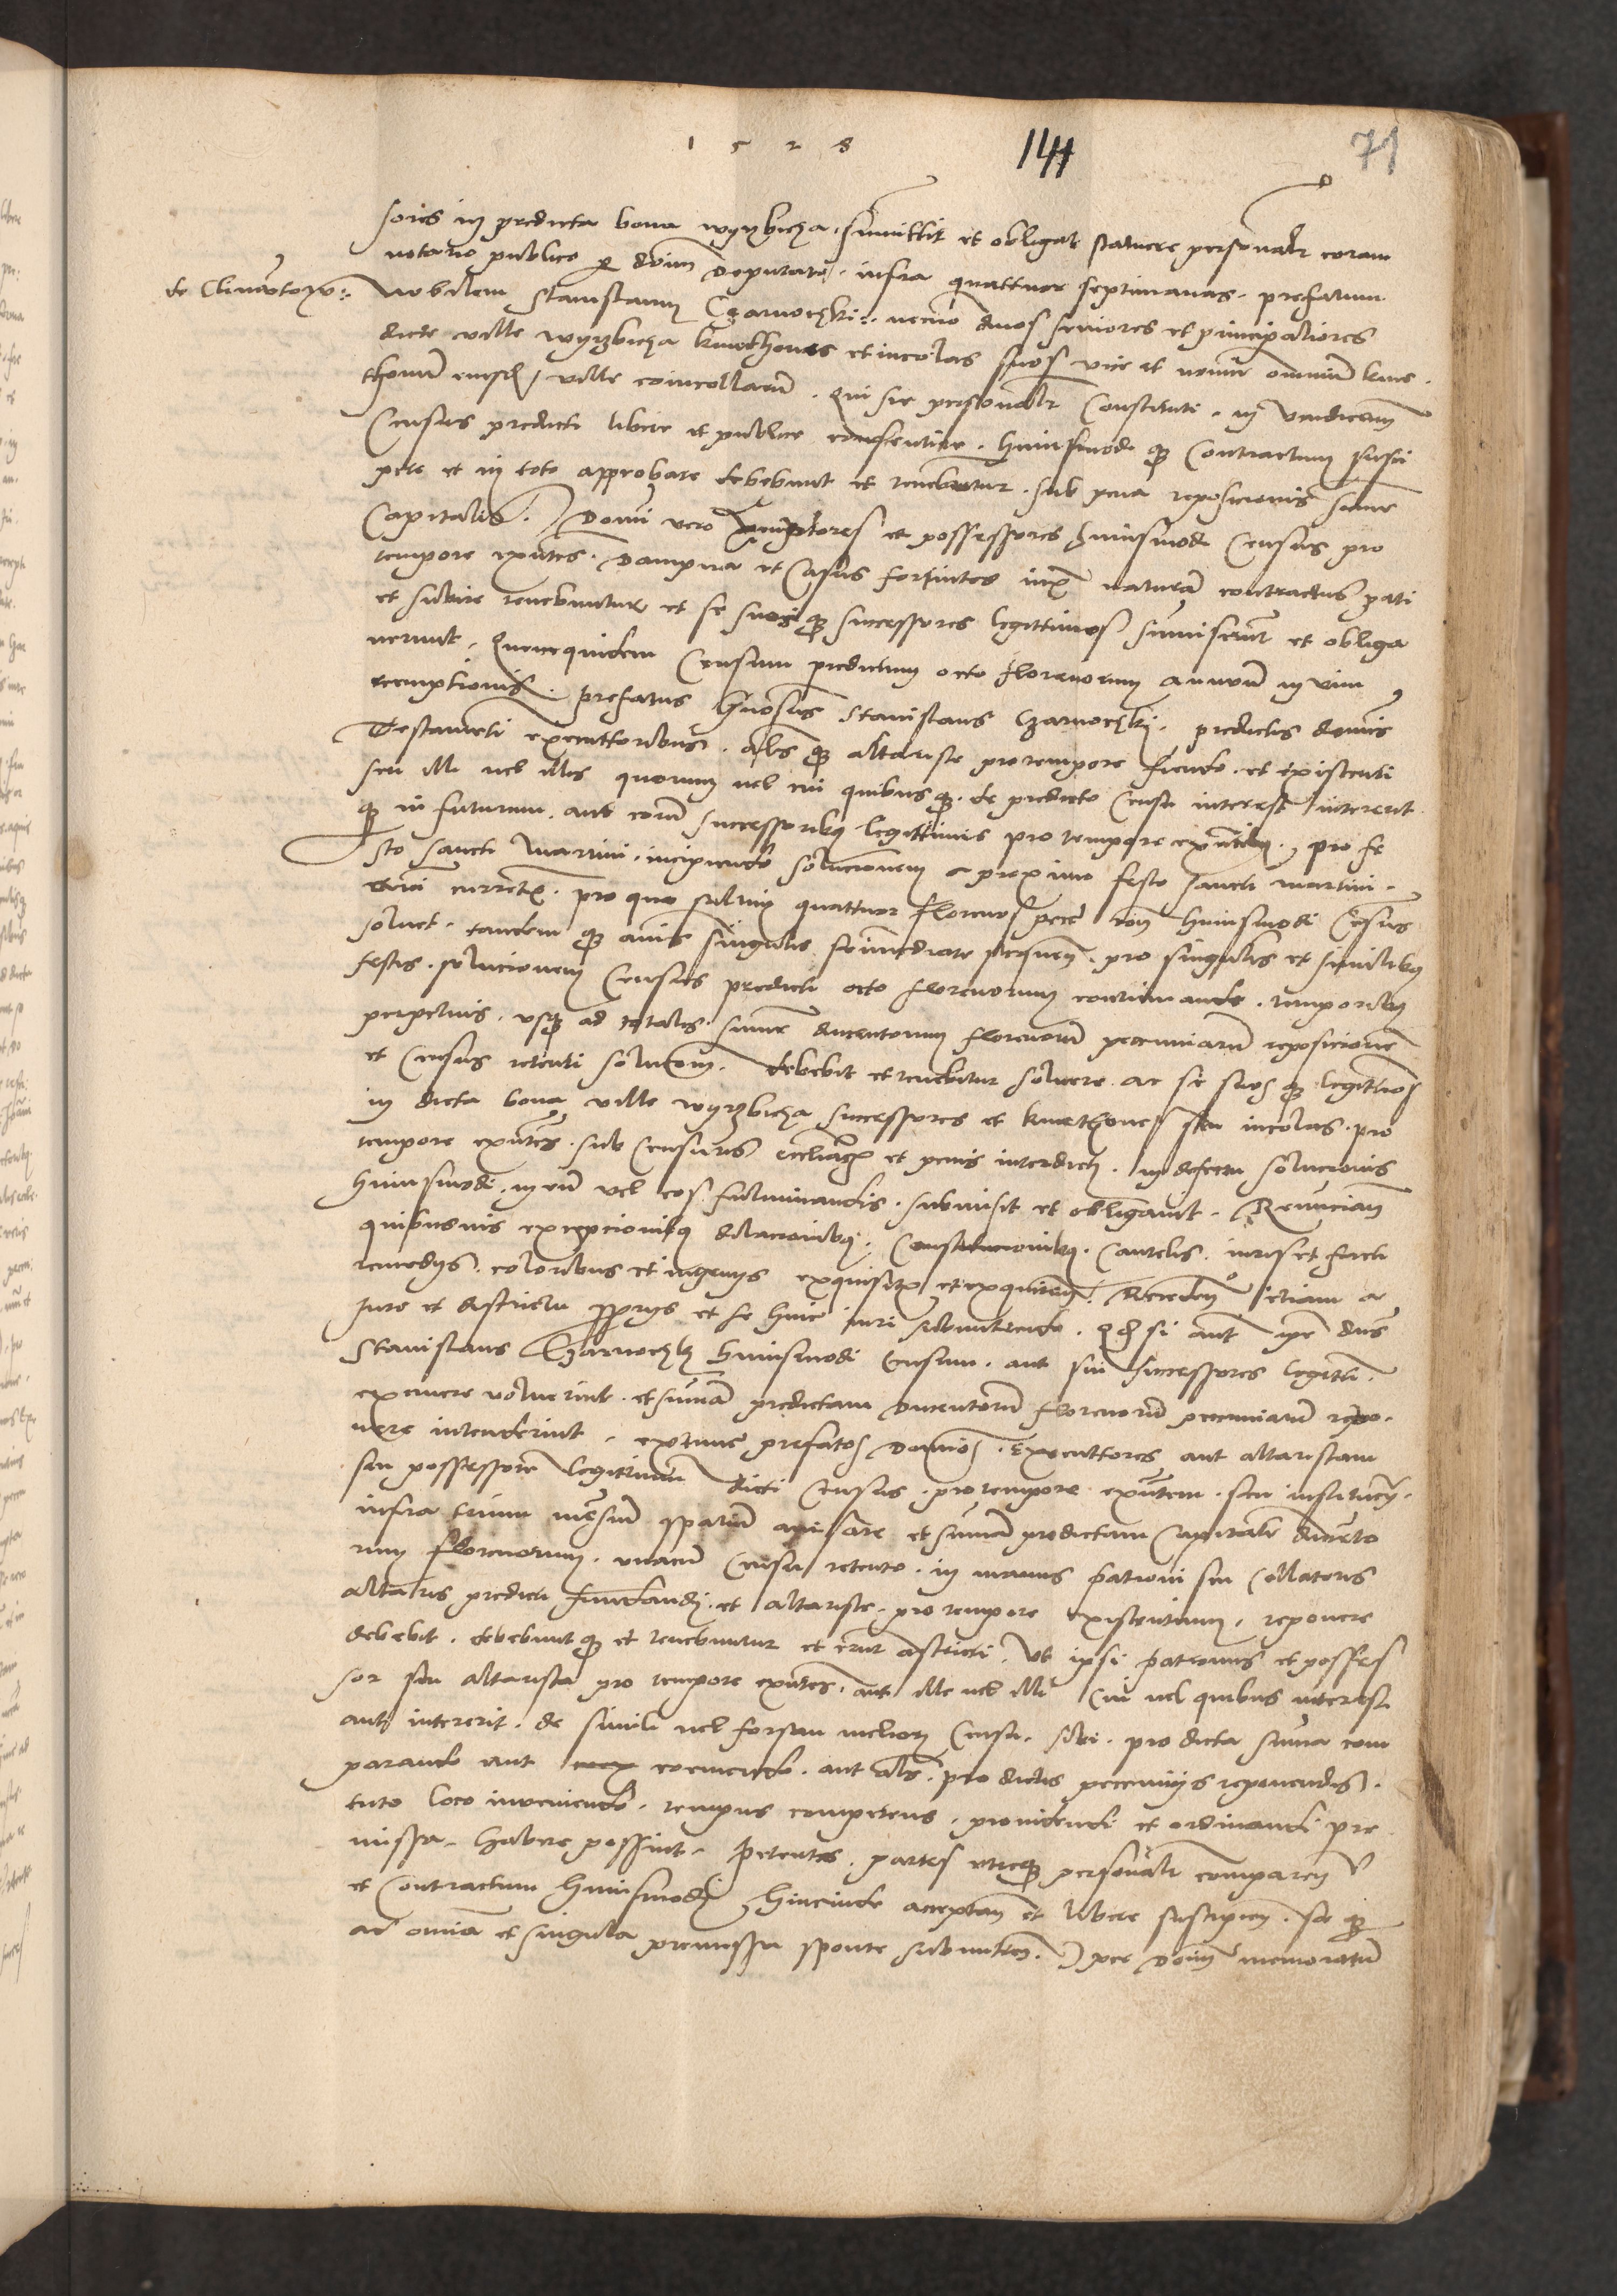 1528
144
71
soris in predicta bona wyrzbicza submittit et obligat statuere personalr coram
notario publico p dnum deputato. infra quattuor septimanas. prefatum
de Climontow
Nobilem Stanislaum Czarnoczki necno duos seniores et principaliores
dicte ville wyrzbicza kmethones et incolas suos vice et nomine omnium kme
thonum eiusd ville coincollarum. Qui sic personalr Constituti. in vendicoem
Census predicti libere et publice consentire. huiusmodi qz Contractum susci
pere et in toto approbare debebunt et tenebuntur. sub pena reposicionis sume
Capitalis. Domi vero emptores et possessores huiusmodi Census pro
tempore exntes. dampna et Casus fortuitos iuxta naturam contractus pati
et subire tenebuntur et se suosqz successores legittimos sumiserunt et obliga
uerunt. Quemquidem Censum predictum octo florenorum annuum in vim
reemptionis. prefatus Gnosus Stanislaus Czarnoczki. predictis domis
Testamenti executtoribus. als qz altariste pro tempore fiendo. et existenti
seu illi uel illis quorum uel cui quibusqz. de predicto Censu interest intererit
qz in futurum. aut eorum successoribus legittimis pro tempore exntibus. pro fe
sto sancti Martini. incipiendo solucionem a proximo festo sancti martini.
anni currentis. pro quo saltim quattuor florenos pecc roe huiusmodi Census
soluet. tandem qz annis singulis se immediate sequen. pro singulis et similibus
festis. solucionem Census predicti octo florenorum continuando. temporibus
perpetuis. vsqz ad totalis sume ducentorum florenorum pecuniarum reposicionem
et Census retenti solucioem. debebit et tenebitur soluere. ac se suosqz legittimos
in dicta bona ville wyrzbicza successores et kmethones seu incolas pro
tempore exntes. sub Censuris eccliasticis et penis interdicti. in defectu solucionis
huiusmodi. in eum vel eos fulminandis. submisit et obligauit. Renuncian
quibusuis excepcionibus dilacionibus. Constitucionibus. Cautelis. iuris et facti
remedys. coloribus et ingenys exquisitis et exquirendis. Recedendo etiam a
iure et districtu pprys et se huic iuri submittendo. Qd si aut ipse dnus
Stanislaus Czarnoczki huiusmodi Censum. aut sui successores legitti.
exemere voluerint. et sumam predictam ducentorum florenorum pecuniarum repo-
nere intenderint. extunc prefatos Domios. Executtores aut altaristam
seu possessorem legittimum dicti Census. pro tempore exntem. seu instituen.
infra trium mensium spatium auisare et sumam predictam Capitalem ducento
rum florenorum. vnacum Censu retento. in manus patroni seu Collatoris
altaris predicti fundandi et altariste. pro tempore existentium. reponere
debebit. debebuntqz et tenebuntur et erunt astricti. Vt ipsi patronus et posses
sor seu altarista pro tempore exntes. aut ille uel illi Cui uel quibus interest
aut intererit. de simili uel forsan meliori Censu. sibi. pro dicta suma com
parando aut coemendo. aut als. pro dictis pecuniis reponendis.
tuto loco inueniendo. tempus competens. prouidendi et ordinandi pre
missa. habere possint. petentes. partes vtreqz personalr comparen
et Contractum huiusmodi hincinde acceptan et libere suscipien. seqz
ad omia et singula premissa sponte submitten. per dnum memoratum